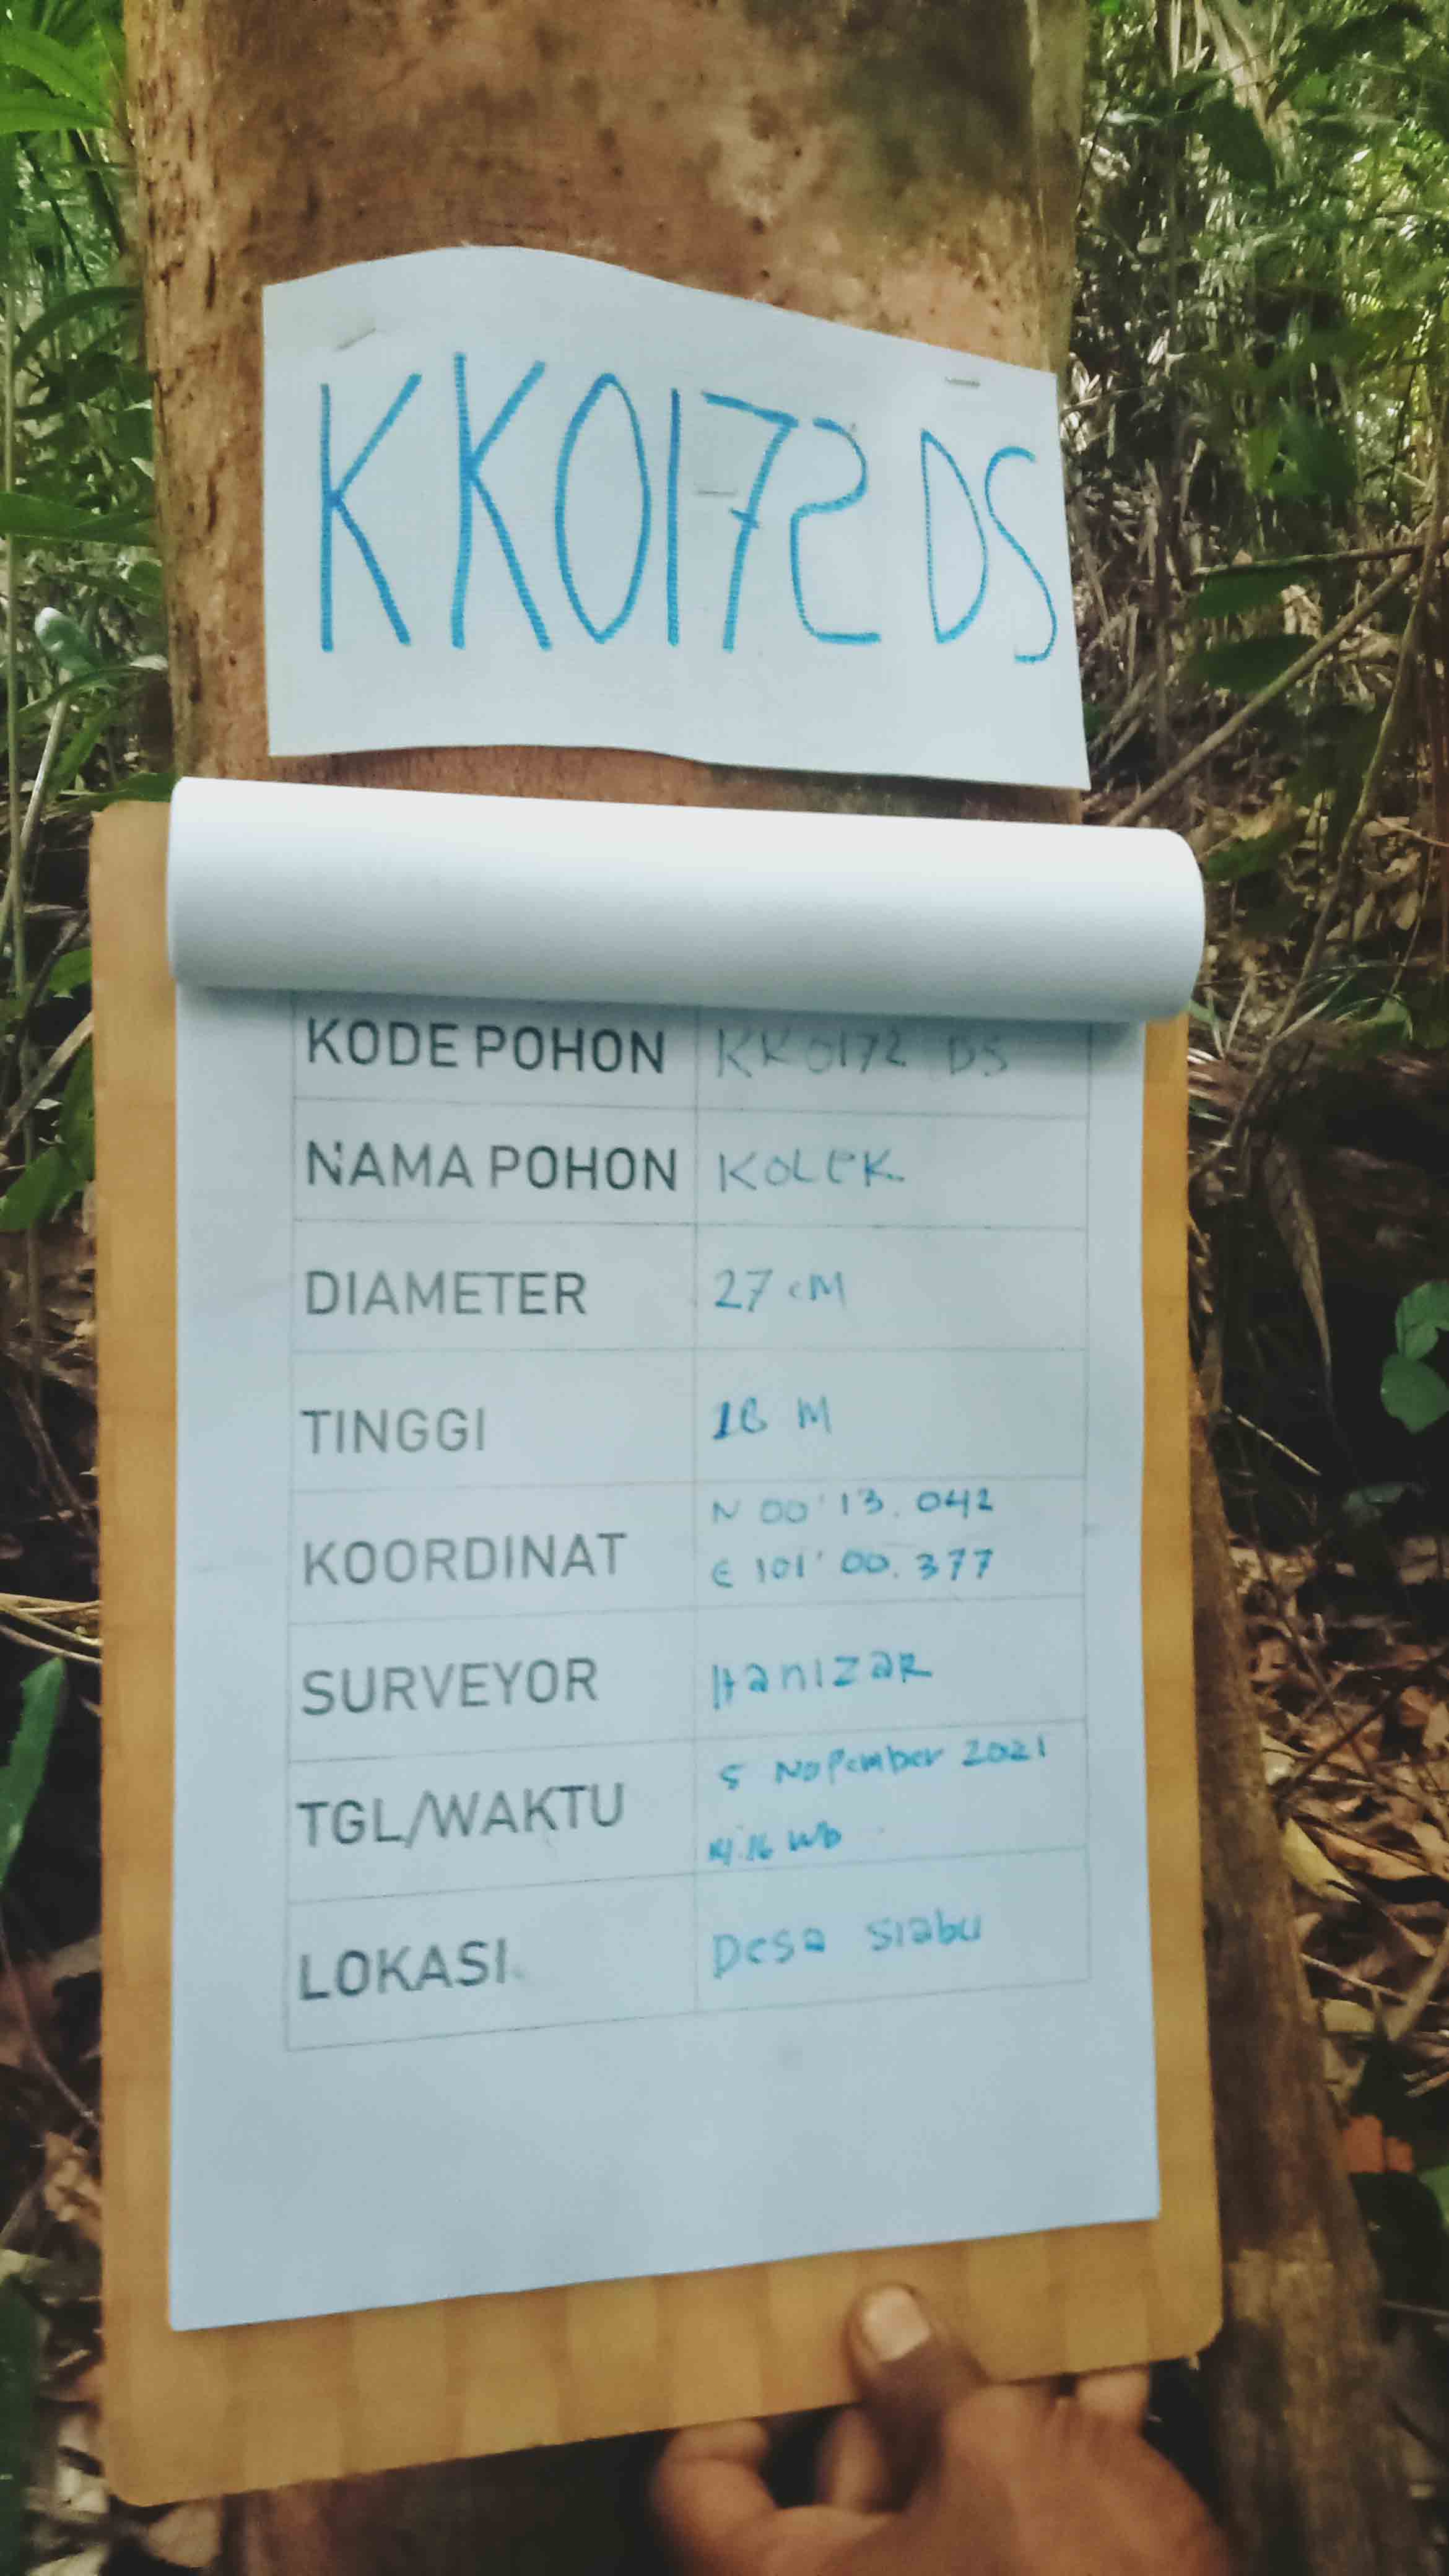 KK0172 DS
KODE POHON KK0172 DS
NAMA POHON KOLEK
DIAMETER 27 cM
TINGGI 18 M
KOORDINAT N 00' 13. 042
E 101' 00. 377
SURVEYOR Hanizar
TGL/WAKTU 5 NoPember 2021
14:16 Wb
LOKASI Desa Siabu